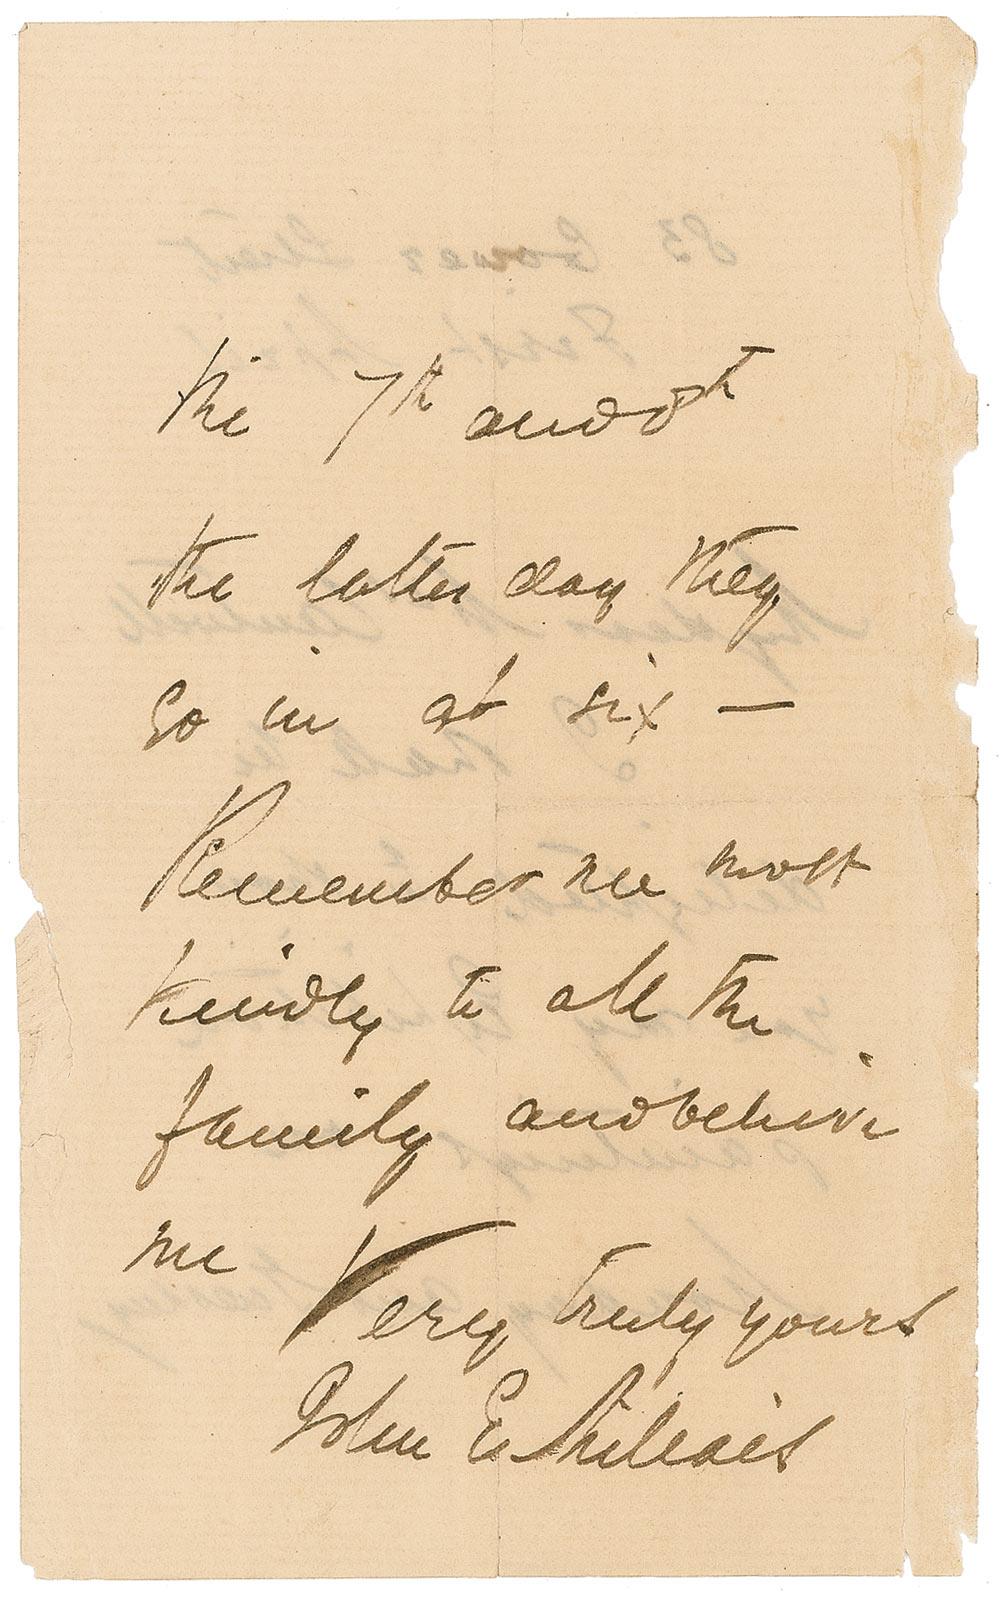 the 7th and 8th
the latter day they
go in at six —
Remember me most
kindly to all the
family and believe
me Very truly yours
John E Millais